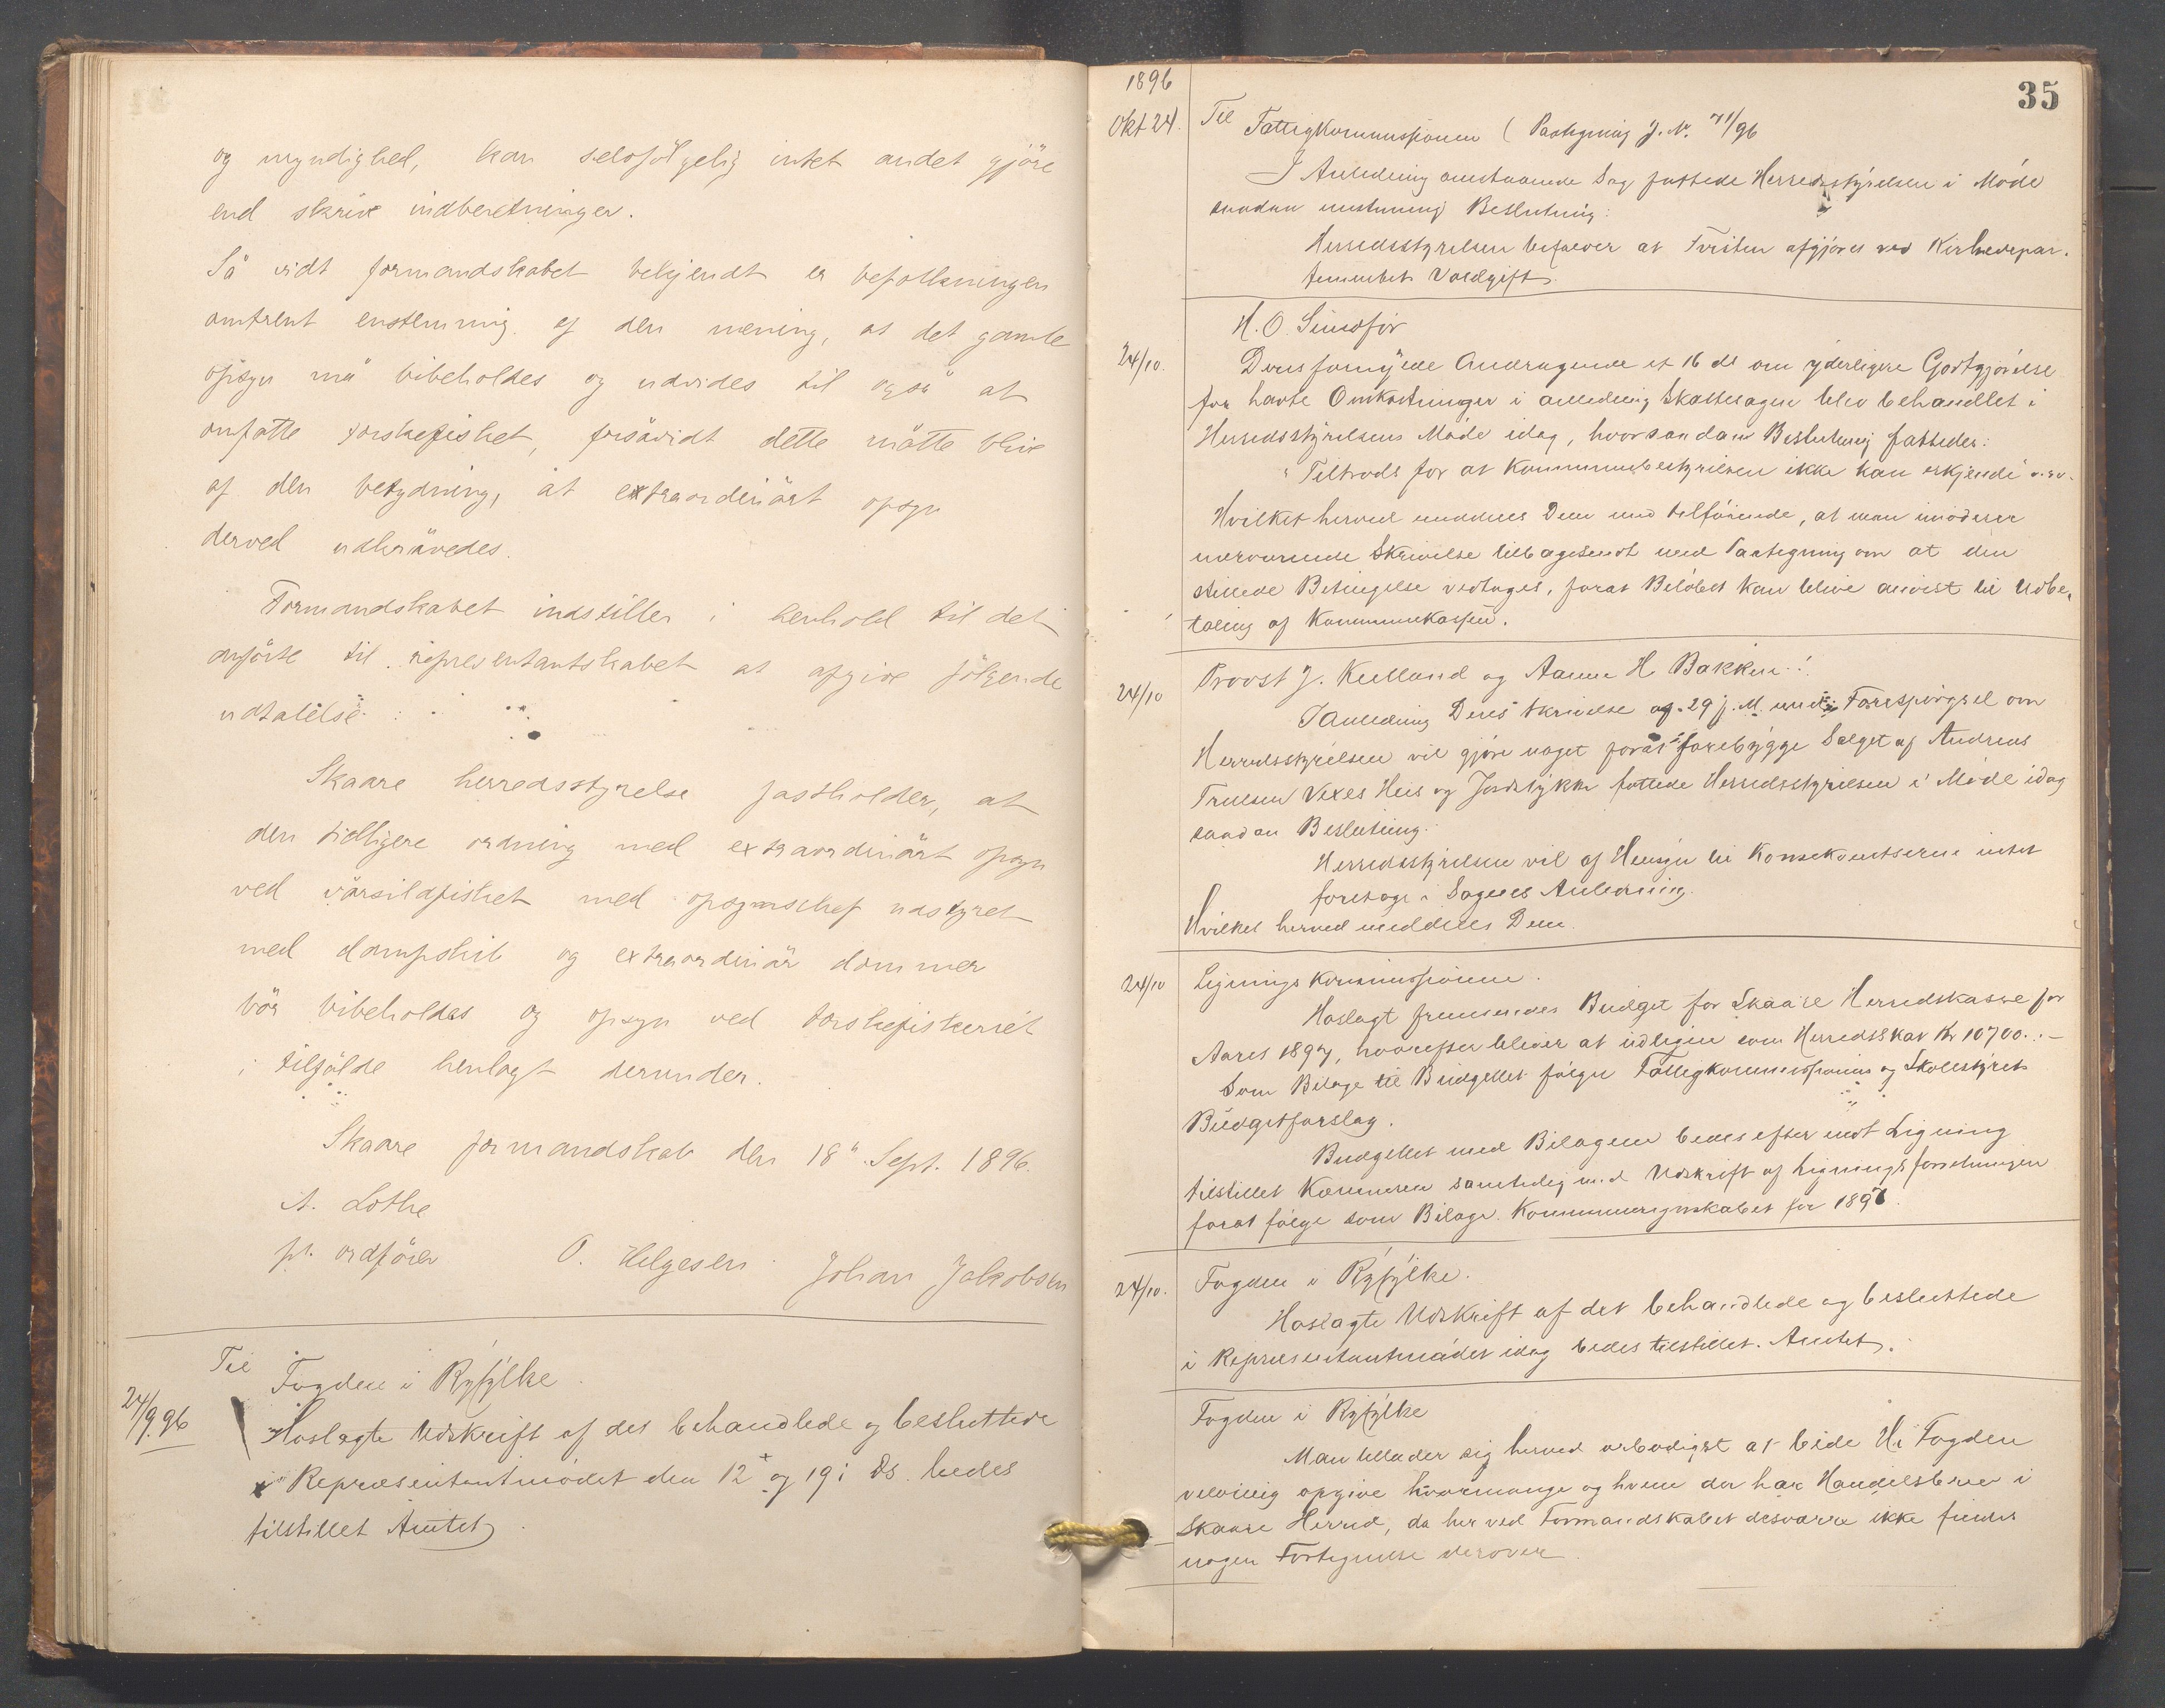 og myndighed, kan selvfölgelig intet andet gjöre
end skrive indberetninger.
Så vidt formandskabet bekjendt er befolkningen
omtrent enstemmig af den mening, at det gamle
opsyn må bibeholdes og udvides til også at
omfatte torskefisket, forsåvidt dette måtte blive
af den betydning, at extraordinärt opsyn
derved udkrävedes.
Formandskabet indstiller i henhold til det
anförte til repræsentantskabet at afgive fölgende
udtalelse:
Skaare herredsstyrelse fastholder, at
den tidligere ordning med extraordinärt opsyn
ved vårsildfisket med opsynschef udstyret
med dampskib og extraordinär dommer
bör bibeholdes og opsyn ved torskefiskeriet
i tilfälde henlagt derunder.
Skaare formandskab den 18. Sept. 1896.
A. Lothe
fs. ordförer O. Helgesen Johan Jakobsen
Til
Fogden i Ryfylke.
24/9.96 Hoslagte Udskrift af det behandlede og besluttede
i Repræsentantmödet den 12 og 19 ds. bedes
tilstillet Amtet
35
1896
Okt 24. Til Fattigkommissionen (Paategning J. Nr. 71/96
I Anledning omstaaende Sag fattede Herredsstyrelsen i Möde
saadan enstemmig Beslutning:
Herredsstyrelsen befaver at Tvisten afgjöres ved Kirkedepar-
tementets Voldgift.
H. O.
24/10. Deres fornyede Andragende af 16 ds om yderligere Godtgjörelse
for havte Omkostninger i anledning Skattesagen blev behandlet i
Herredsstyrelsens Möde idag, hvor saadan Beslutning fattedes:
"Tiltrods for at Kommunebestyrelsen ikke kan erkjende o.s.v.
Hvilket herved meddeles Dem med tilföiende, at man imödeser
nærværende Skrivelse tilbagesendt med Paategning om at den
stillede Betingelse vedtages, forat Belöbet kan blive anvist til Udbe-
taling af Kommunekassen.
24/10 Provst J. Kielland og Aanen H Bakken!
I Anledning Deres Skrivelse af 29 f. M. med Forespörgsel om
Herredsstyrelsen vil gjöre noget forat forebygge Salget af Andreas
Truelsen Vexes Hus og Jordstykke fattede Herredsstyrelsen i Möde idag
saadan Beslutning:
Herredsstyrelsen vil af Hensyn til Konsekventserne intet
foretage i Sagens Anledning.
Hvilket herved meddeles Dem.
24/10 Ligningskommissionen.
Hoslagt fremsendes Budget for Skaare Herredskasse for
Aaret 1897, hvorefter bliver at udligne som Herredsskat Kr 10700.-
Som Bilage til Budgettet fölger Fattigkommissionens og Skolestyrets
Budgetforslag.
Budgettet med Bilagene bedes efter endt Ligning
tilstillet Kæmneren samtidig med Udskrift af Ligningsforretningen
forat fölge som Bilage Kommuneregnskabet for 1897.
24/10. Fogden i Ryfylke.
Hoslagte Udskrift af det behandlede og besluttede
i Repræsentantmödet idag bedes tilstillet Amtet.
Fogden i Ryfylke
Man tillader sig herved ærbödigst at bede Hr Fogden
velvillig opgive hvormange og hvem der har Handelsbrev i
Skaare Herred, da her ved Formandskabet desværre ikke findes
nogen Fortegnelse derover.